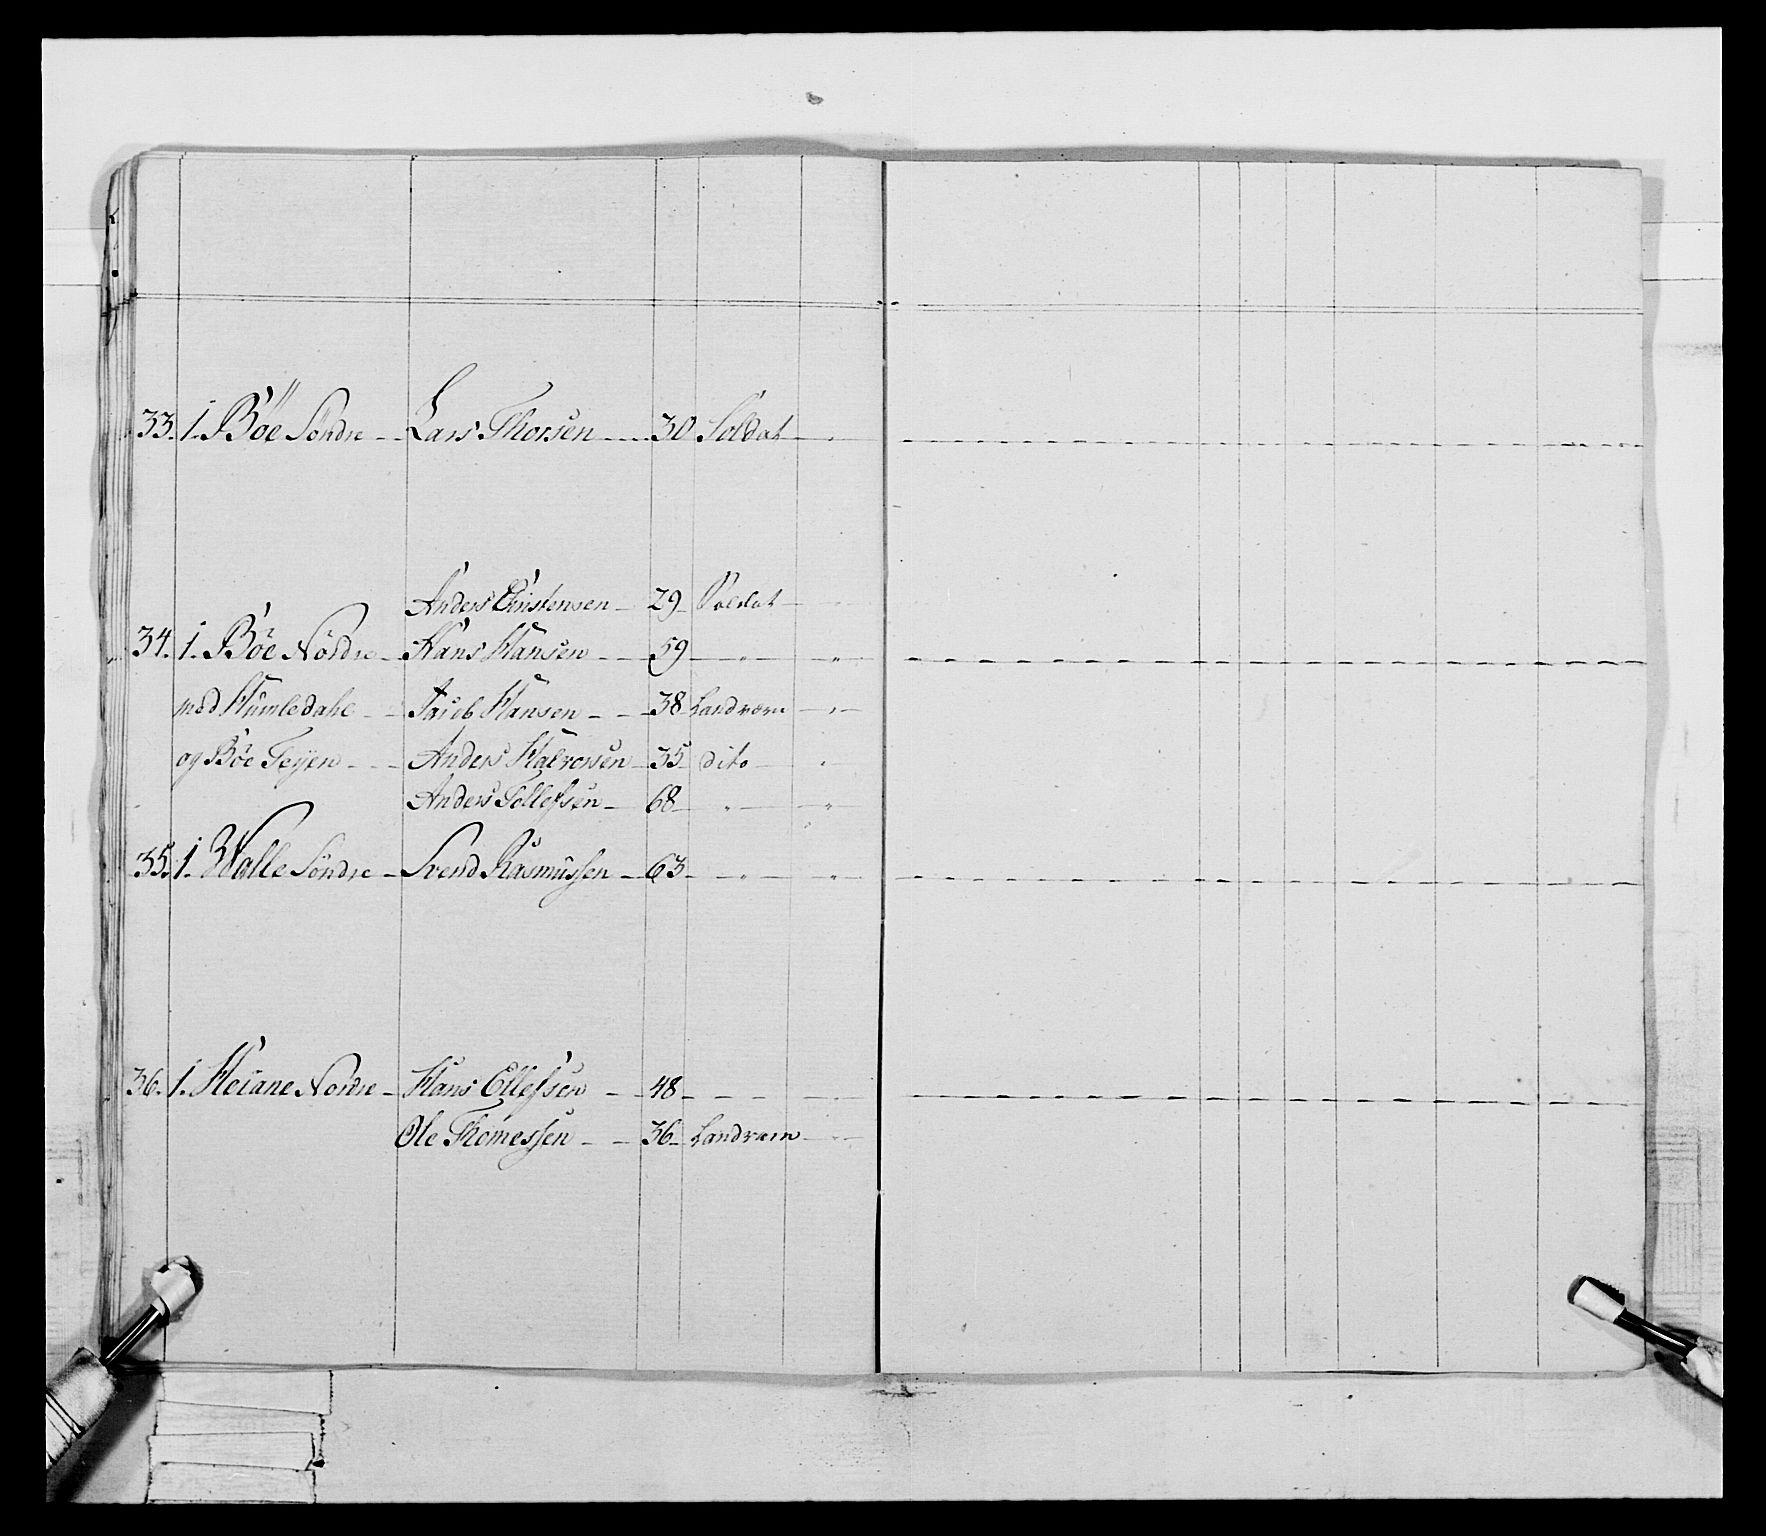 33. 1. Böe Söndre - Lars Thorsen - 30 Soldat - „
Anders Christensen - 29 - Soldat -
34. 1. Böe Nördre - Hans Hansen - 59 - „ - „
med Humledahl - Jacob Hansen - 38 Landværn - „ -
og Böe Teyen - Anders Halvorsen - 35 dito - „
Anders Tollefsen - 68 - „ - „
35. 1. Walle Söndre - Svend Rasmussen - 63 - „ - „
36. 1. Heiane Nordre - Hans Ellefsen - 48 -
Ole Thomessen - 36 - Landværn -